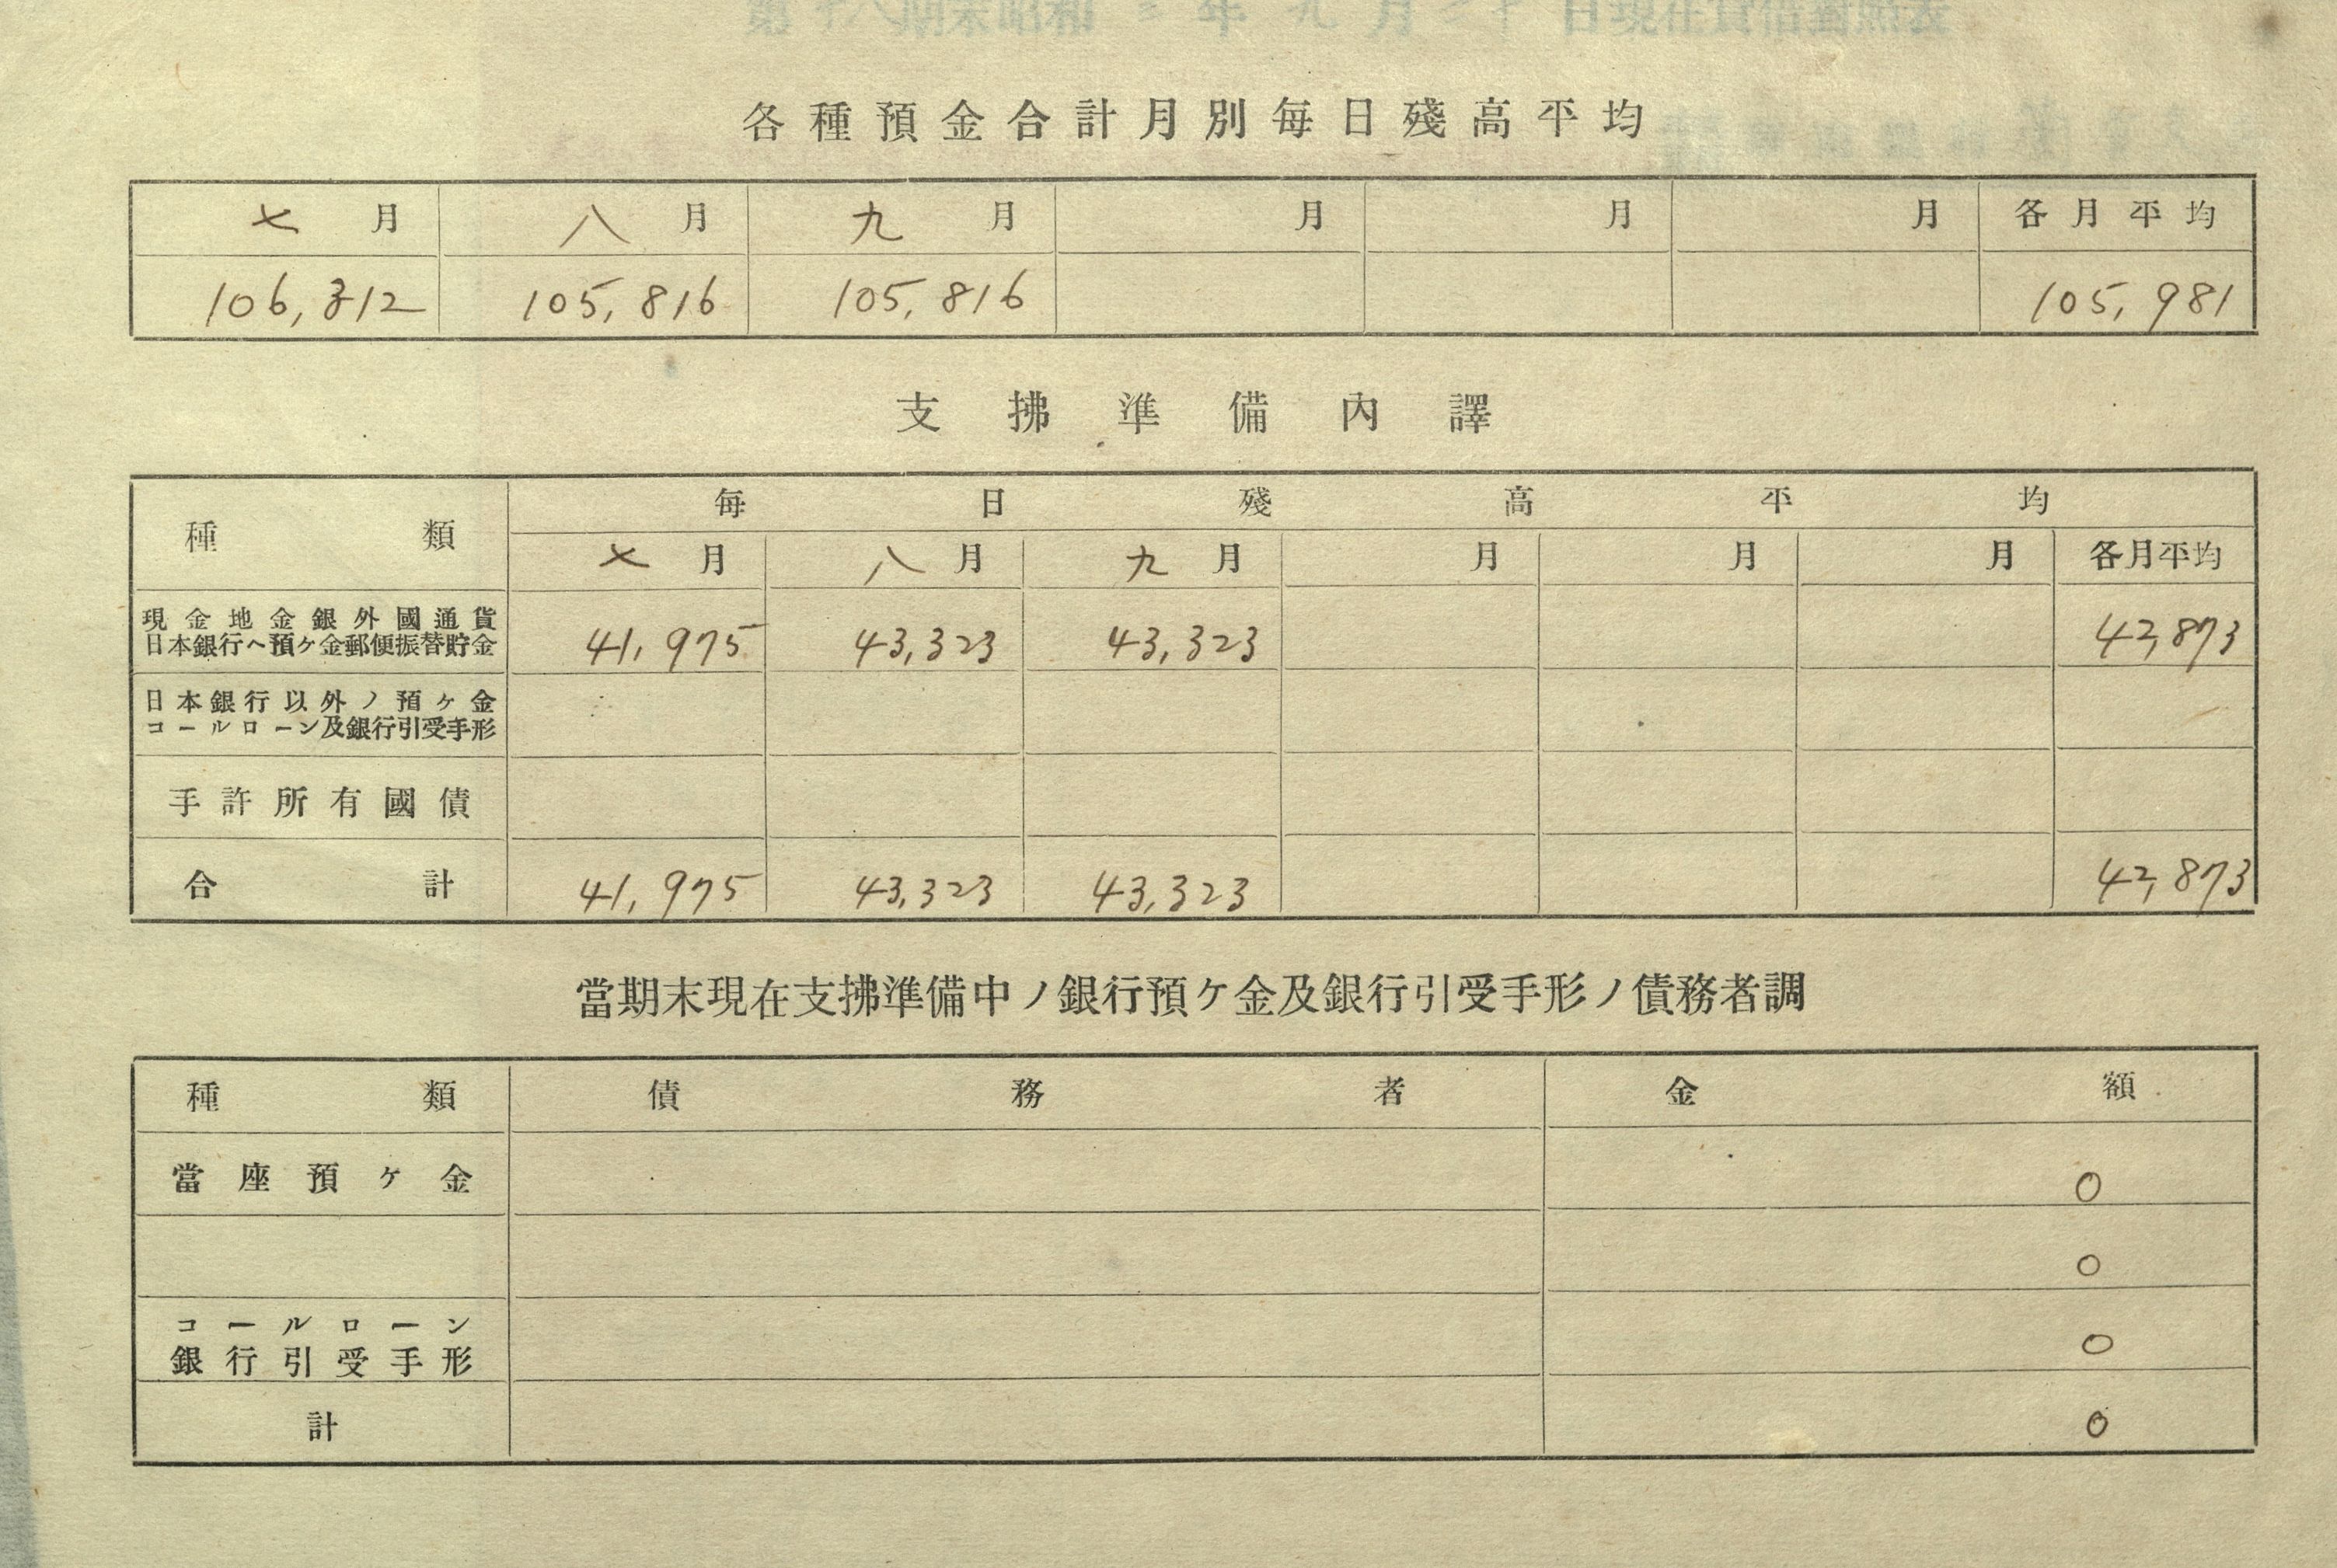 第十八期末昭和三年九月三十日現在貸借對照表
各種預金合計月別每日殘高平均
七月 八月 九月 月 月 月 各月平均
106,312 105,816 105,816 105,981
支拂準備內譯
種類 每日殘高平均
七月 八月 九月 月 月 月 各月平均
現金地金銀外國通貨
日本銀行ヘ預ケ金郵便振替貯金 41,975 43,323 43,323 42,873
日本銀行以外ノ預ケ金
コールローン及銀行引受手形
手許所有國債
合計 41,975 43,323 43,323 42,873
當期末現在支拂準備中ノ銀行預ケ金及銀行引受手形ノ債務者調
種類 債務者 金額
當座預ケ金 0
0
コールローン
銀行引受手形 0
計 0